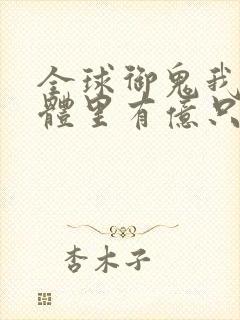 全球御鬼我
體里有億只
杏木子